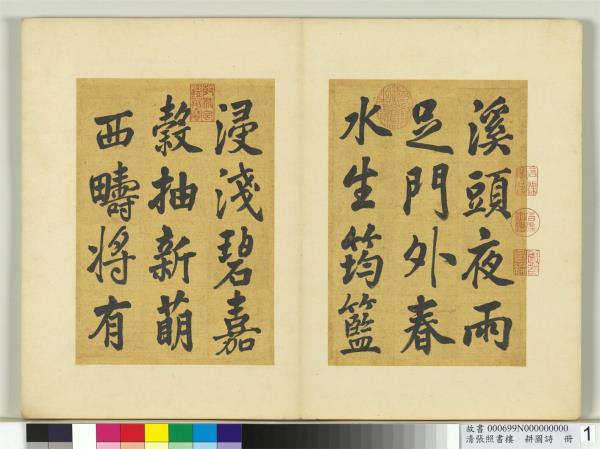 溪頭夜雨
足門外春
水生筠籃
浸淺碧嘉
穀抽新萌
西疇將有
故書 000699N000000000
清張照書樓 耕圖詩 冊
1